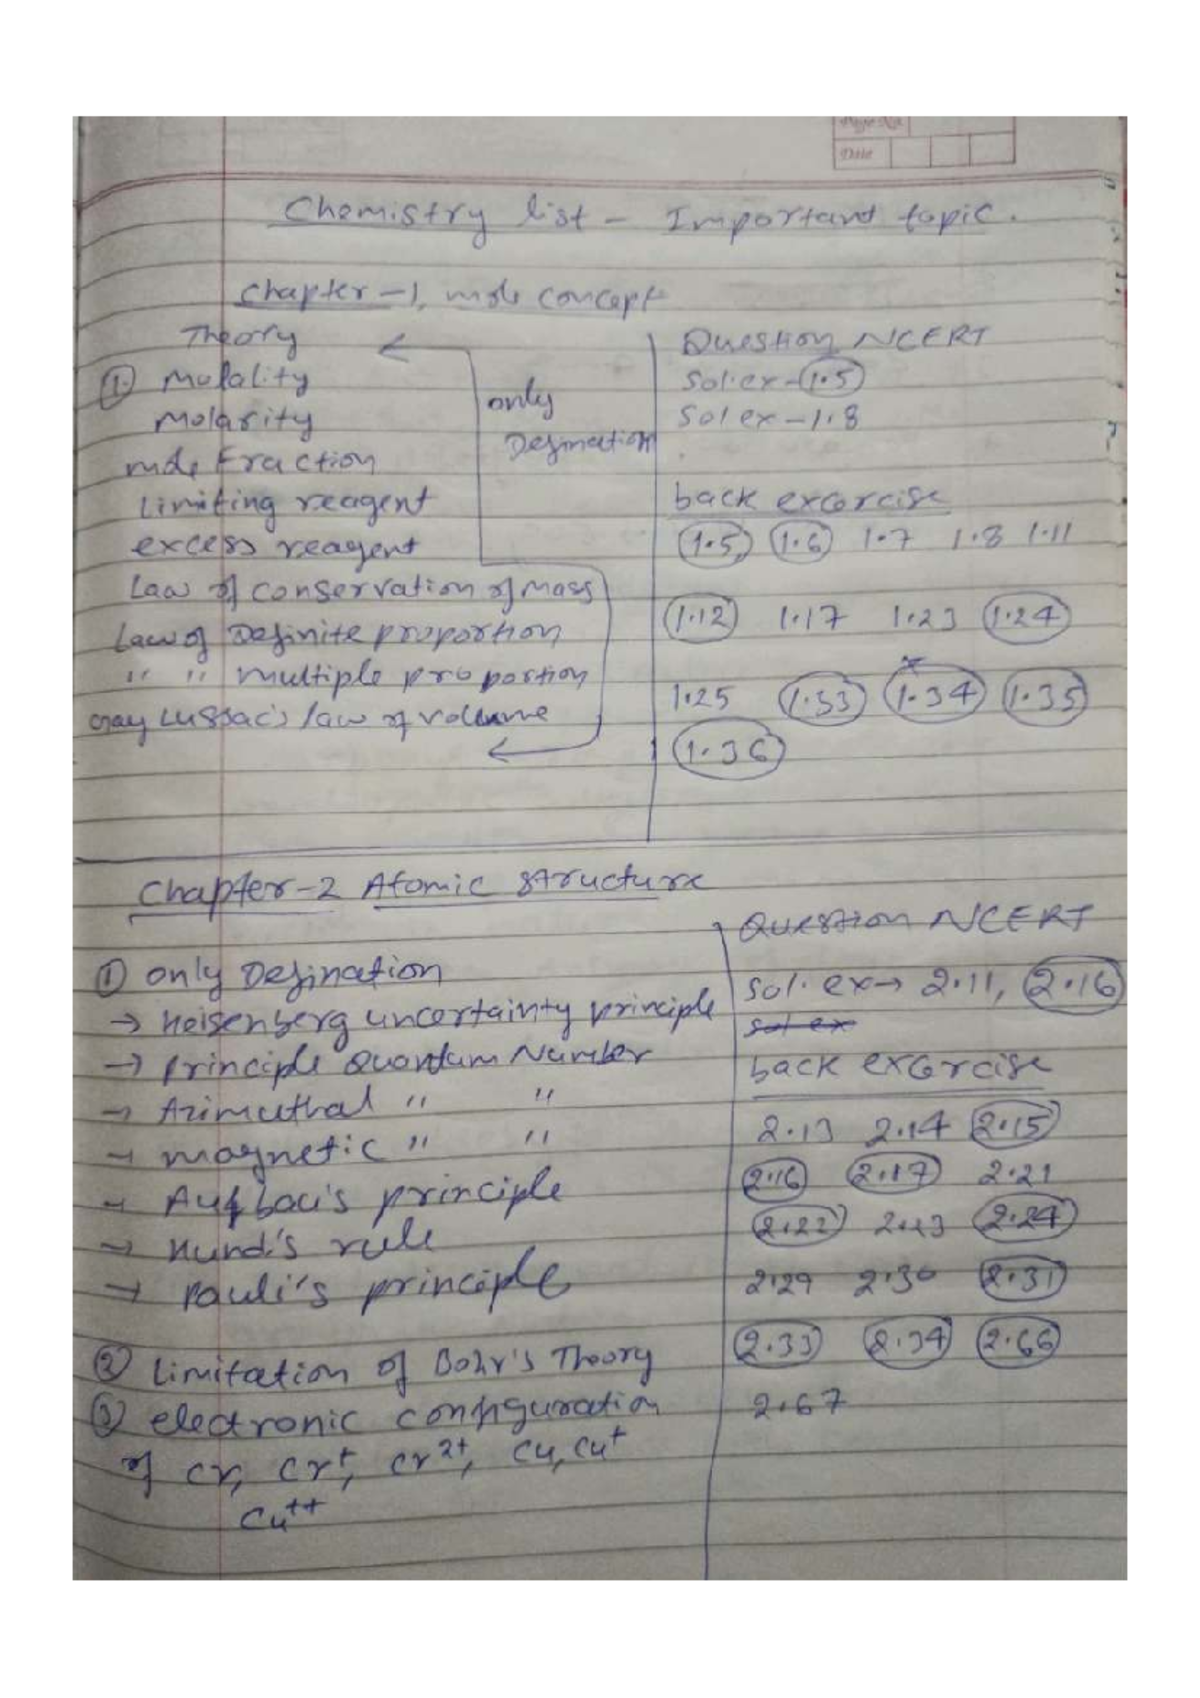 Page No.
Date
Chemistry list - Important topic.
Chapter-1, mole concept
Theory
① Molality
Molarity
mole Fraction
Limiting reagent
excess reagent
Law of conservation of mass
Law of Definite proportion
" " multiple proportion
Gay Lussac's law of volume
only
Defination
Question NCERT
Sol.ex-1.5
Sol ex-1.8
back exercise
1.5, 1.6 1.7 1.8 1.11
1.12 1.17 1.23 1.24
1.25 1.33 1.34 1.35
1.36
Chapter-2 Atomic structure
① only Defination
→ Heisenberg uncertainty principle
→ principle Quantum Number
→ Azimuthal " "
→ magnetic " "
→ Aufbau's principle
→ Hund's rule
→ Pauli's principle
② Limitation of Bohr's Theory
③ electronic configuration
of Cr, Cr+, Cr2+, Cu, Cu+
Cu++
Question NCERT
Sol. ex → 2.11, 2.16
sol ex
back exercise
2.13 2.14 2.15
2.16 2.17 2.21
2.22 2.23 2.24
2.29 2.30 2.31
2.33 2.34 2.66
2.67